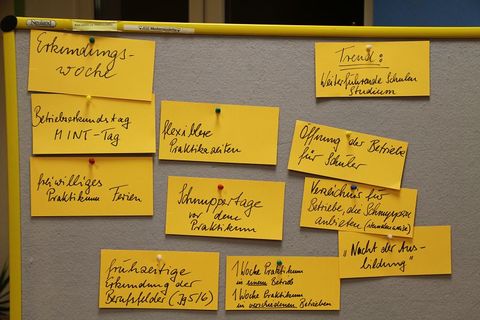 Neuland
Erkundungs-
woche
Betriebserkundstag
MINT-Tag
freiwilliges
Praktikum Ferien
flexiblere
Praktikazeiten
Schnuppertage
vor dem
Praktikum
frühzeitige
Erkundung der
Berufsfelder (Jg 5/6)
Trend:
Weiterführende Schulen
Studium
Öffnung der Betriebe
für Schüler
Verzeichnis für
Betriebe, die Schnupperpr.
anbieten
"Nacht der Aus-
bildung"
1 Woche Praktikum
in einem Betrieb
1 Woche Praktikum
in verschiedenen Betrieben